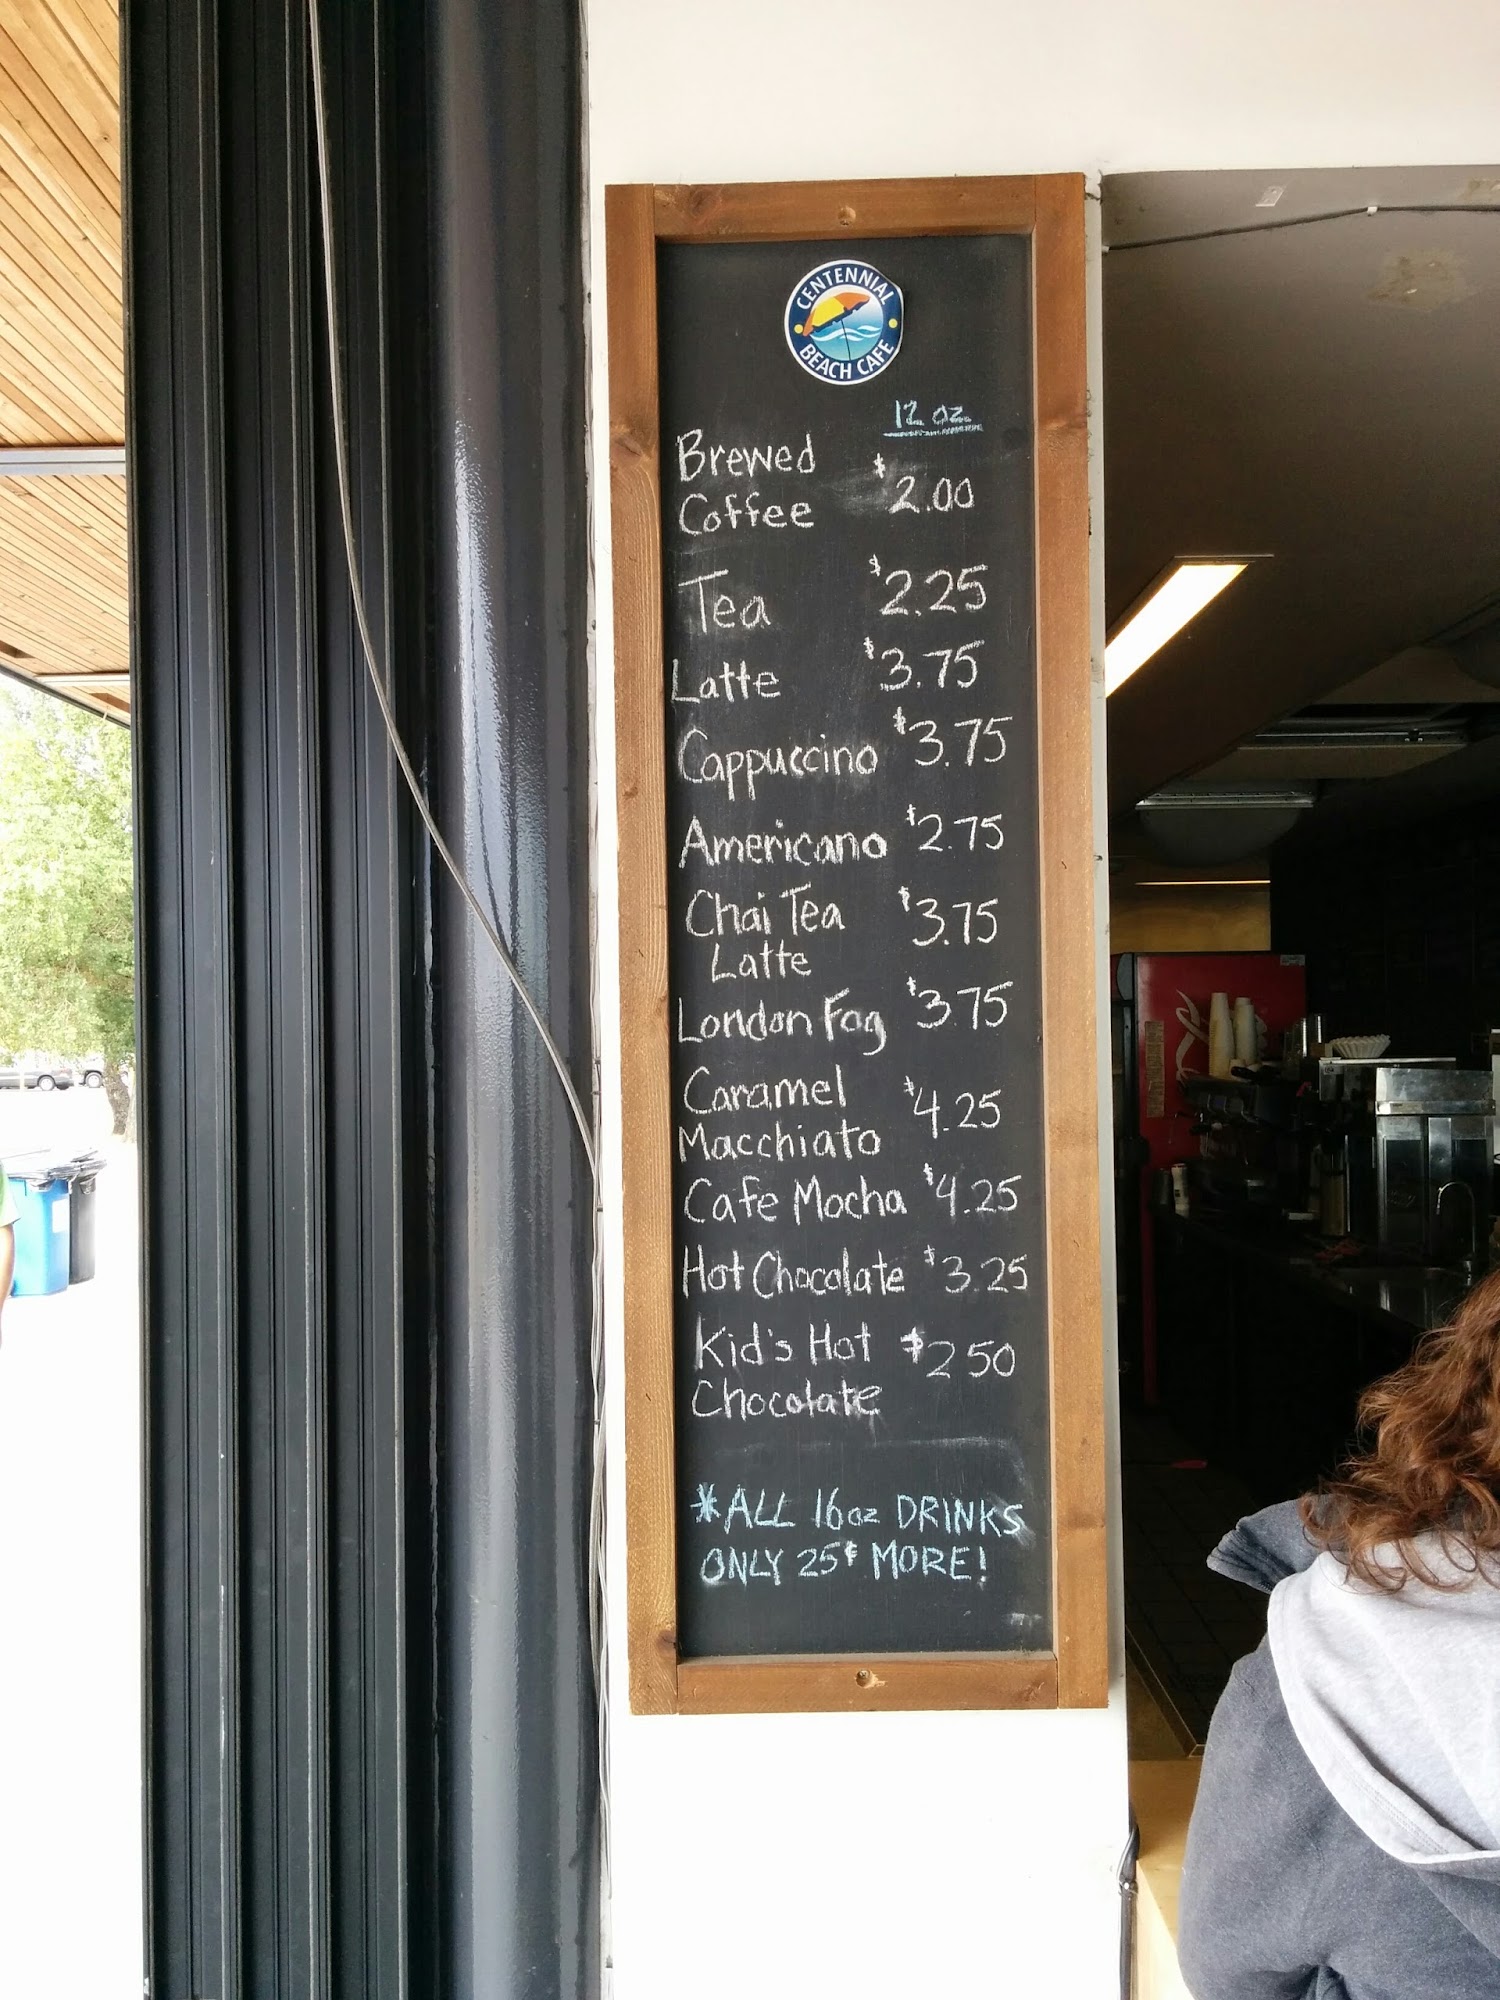 CENTENNIAL
BEACH CAFE
12 oz
Brewed
Coffee $2.00
Tea $2.25
Latte $3.75
Cappuccino $3.75
Americano $2.75
Chai Tea $3.75
Latte
London Fog $3.75
Caramel $4.25
Macchiato
Cafe Mocha $4.25
Hot Chocolate $3.25
Kid's Hot $2 50
Chocolate
*ALL 16oz DRINKS
ONLY 25¢ MORE!